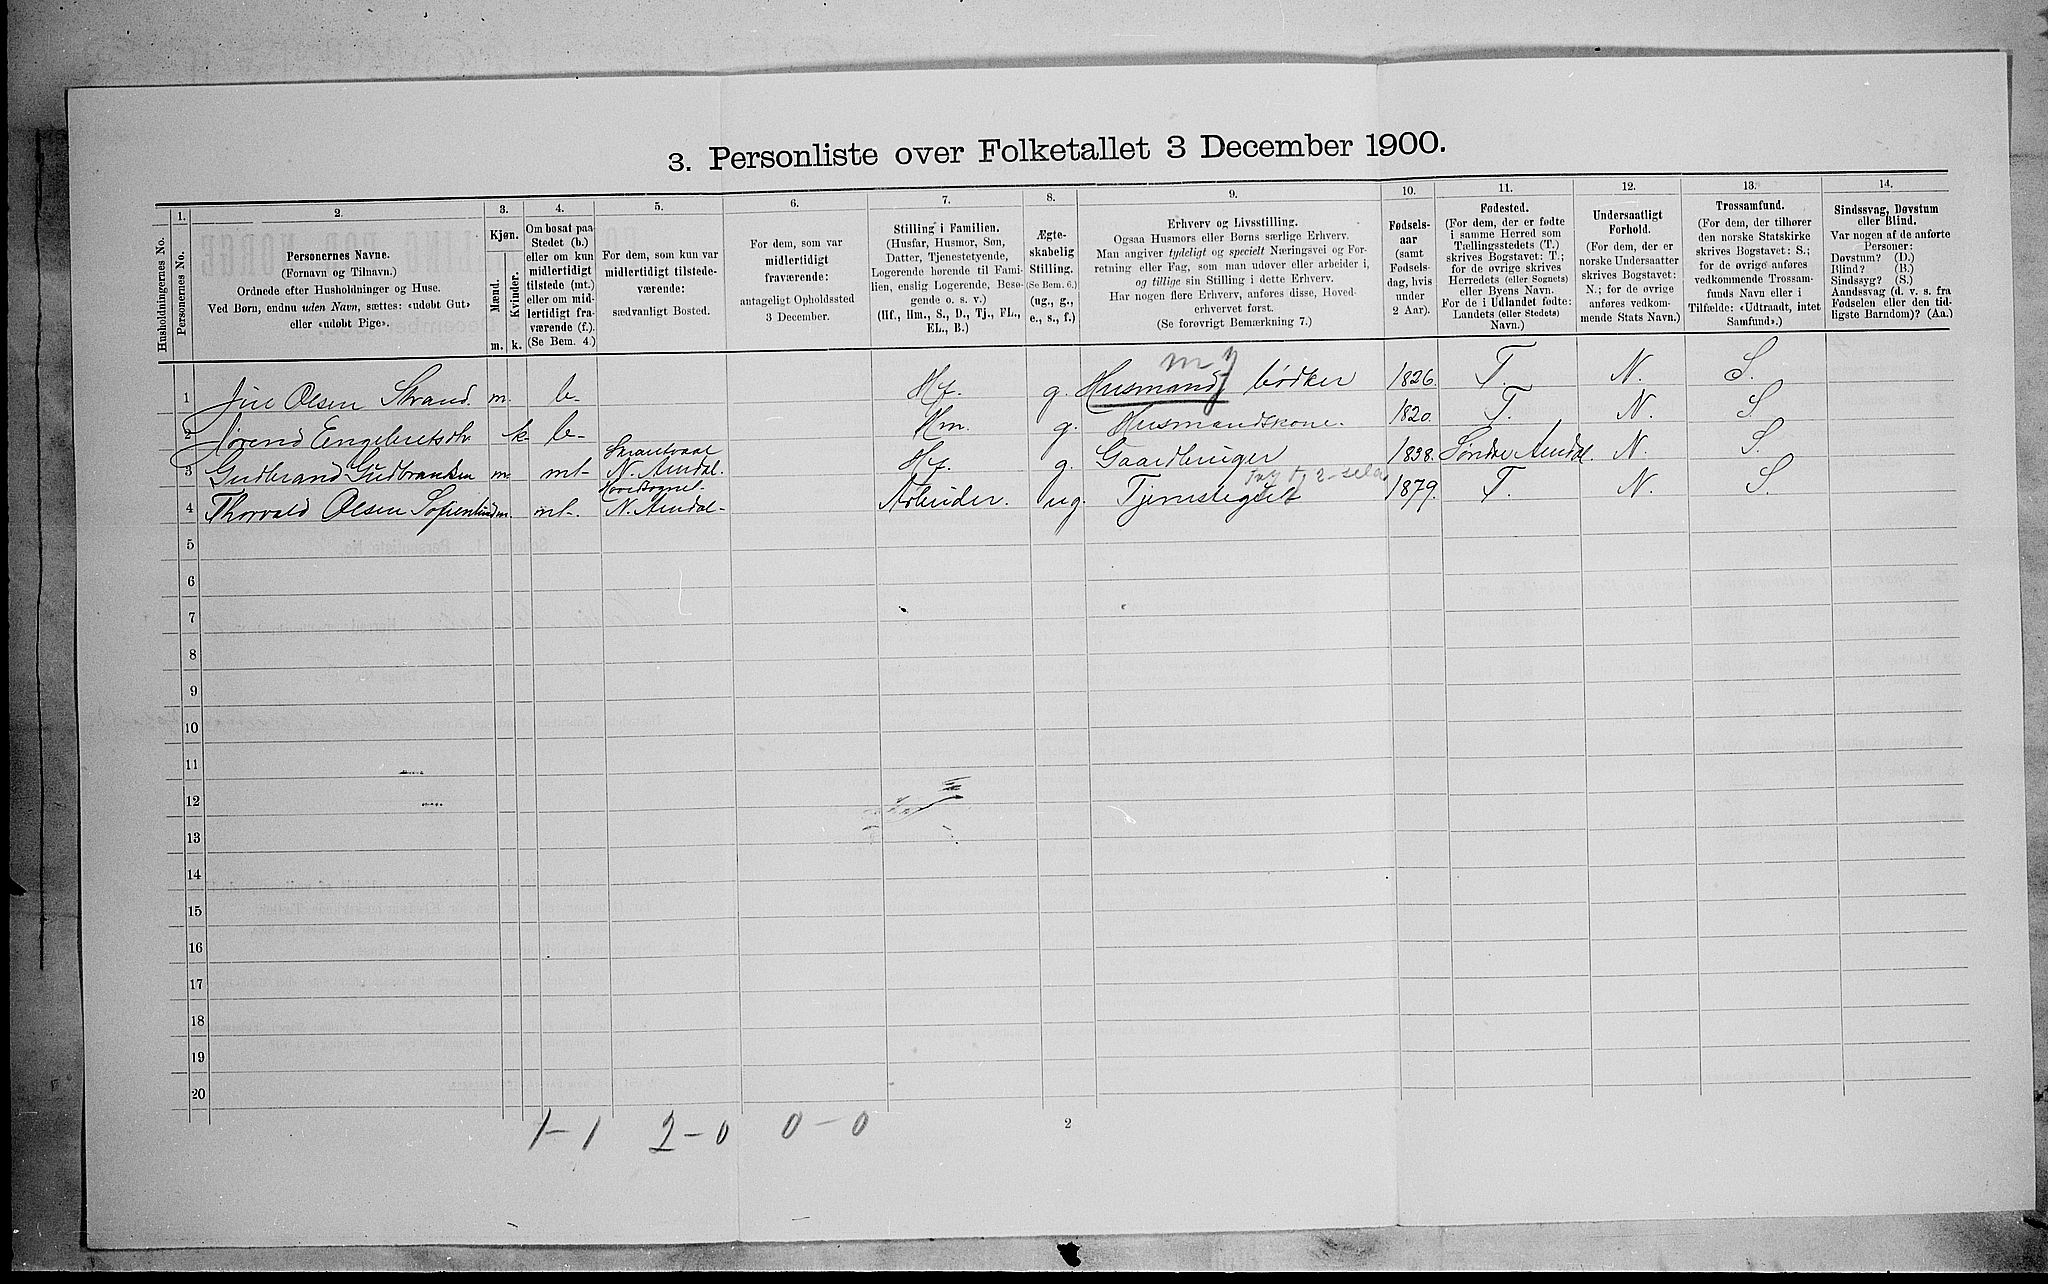 3. Personliste over Folketallet 3 December 1900.
1. 2. 3. 4. 5. 6. 7. 8. 9. 10. 11. 12. 13. 14.
Husholdningernes No.
Personernes No.
Personernes Navne.
(Fornavn og Tilnavn.)
Ordnede efter Husholdninger og Huse.
Ved Børn, endnu uden Navn, sættes: «udøbt Gut»
eller «udøbt Pige».
Kjøn.
Mænd.
Kvinder.
m. k.
Om bosat paa
Stedet (b.)
eller om kun
midlertidigt
tilstede (mt.)
eller om mid-
lertidigt fra-
værende (f.).
(Se Bem. 4.)
For dem, som kun var
midlertidigt tilstede-
værende:
sædvanligt Bosted.
For dem, som var
midlertidigt
fraværende:
antageligt Opholdssted
3 December.
Stilling i Familien.
(Husfar, Husmor, Søn,
Datter, Tjenestetyende,
Logerende hørende til Fami-
lien, enslig Logerende, Besø-
gende o. s. v.)
(Hf., Hm., S., D., Tj., FL.,
EL., B.)
Ægte-
skabelig
Stilling.
(Se Bem. 6.)
(ug., g.,
e., s., f.)
Erhverv og Livsstilling.
Ogsaa Husmors eller Børns særlige Erhverv.
Man angiver tydeligt og specielt Næringsvei og For-
retning eller Fag, som man udøver eller arbeider i,
og tillige sin Stilling i dette Erhverv.
Har nogen flere Erhverv, anføres disse, Hoved-
erhvervet først.
(Se forøvrigt Bemærkning 7.)
Fødsels-
aar
(samt
Fødsels-
dag, hvis
under
2 Aar).
Fødested.
(For dem, der er fødte
i samme Herred som
Tællingsstedets (T.)
skrives Bogstavet: T.;
for de øvrige skrives
Herredets (eller Sognets)
eller Byens Navn.
For de i Udlandet fødte:
Landets (eller Stedets)
Navn.)
Undersaatligt
Forhold.
(For dem, der er
norske Undersaatter
skrives Bogstavet:
N.; for de øvrige
anføres vedkom-
mende Stats Navn.)
Trossamfund.
(For dem, der tilhører
den norske Statskirke
skrives Bogstavet: S.;
for de øvrige anføres
vedkommende Trossam-
funds Navn eller i
Tilfælde: «Udtraadt, intet
Samfund».)
Sindssvag, Døvstum
eller Blind.
Var nogen af de anførte
Personer:
Døvstum? (D.)
Blind? (B.)
Sindssyg? (S.)
Aandssvag (d. v. s. fra
Fødselen eller den tid-
ligste Barndom)? (Aa.)
1 Olsen Strand. m. b- Hf. g. Husmand, bødker 1826. T. N. S.
2 Jørend Engebretsdtr k- b- Hm. g. Husmandskone. 1820. T. N. S
3 Gudbrand Gudbrandsen m mt- N. Aurdal. Hf. g. Gaardbruger 1838. Søndre Aurdal. N. S.
Hovedsognet-
4 Thorvald Olsen m. mt. N. Aurdal- Arbeider. ug. 1879. T. N. S.
5
6
7
8
9
10
11
12
13
14
15
16
17
18
19
20
1-1 2-0 0-0
2